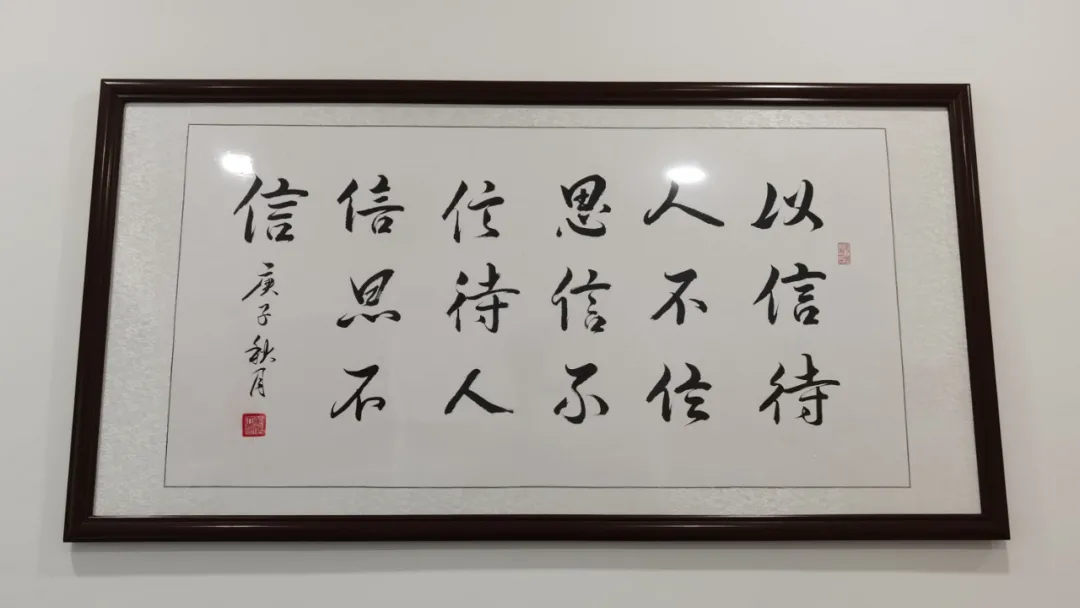 以信待
人不信
思信不
信待人
信思不
信
庚子秋月